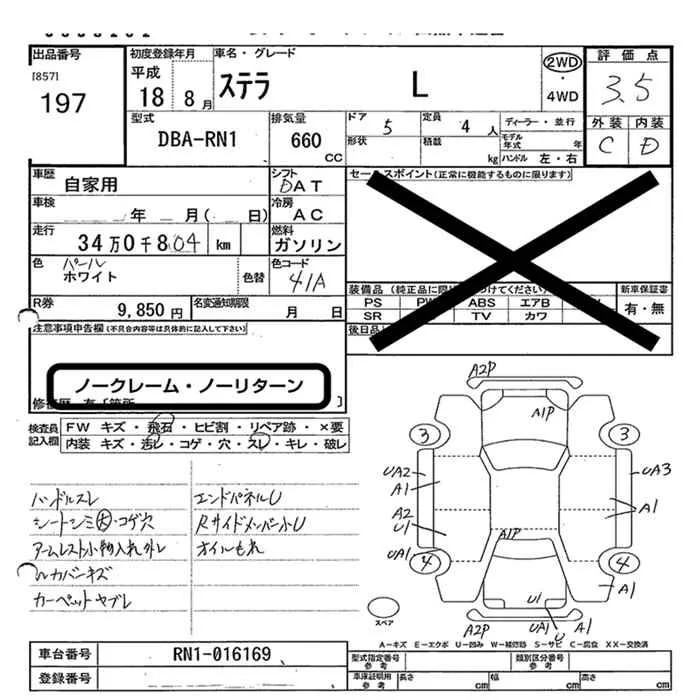 出品番号
[857]
197
初度登録年月
平成
18 8月
車名・グレード
ステラ L
2WD
・
4WD
評価点
3.5
外装 内装
C D
型式
DBA-RN1
排気量
660
CC
ドア 5
定員 4 人
ディーラー・並行
形状
積載 kg
モデル年式 年
ハンドル 左・右
車歴
自家用
シフト
DAT
車検
年 月( 日)
冷房
AC
走行
34万0千804 km
燃料
ガソリン
色
パール
ホワイト
色替
色コード
41A
R券
9,850円
名変通知期限
月 日
セールスポイント(正常に機能するものに限ります)
装備品(純正品に限
つけてください)
PS
ABS エアB
SR TV カワ
新車保証書
有・無
後日品
注意事項申告欄(不具合内容等は具体的に記入して下さい)
ノークレーム・ノーリターン
検査員
記入欄
FW キズ・飛石・ヒビ割・リペア跡・×要
内装 キズ・汚レ・コゲ・穴・スレ・キレ・破レ
ハンドルスレ
シートシミ大・コゲ穴
アームレスト小物入れ外レ
ルカバーキズ
カーペットヤブレ
エンドパネルU
Rサイドメンバー小U
オイルもれ
A2P
A1P
3
3
UA2
A1
UA3
A1
A2
U1
A1P
UA1
4
4
A1
U1
A2P
UA1
U
A1
スペア
A－キズ E－エクボ U－凹み W－補修跡 S－サビ C－腐食 XX－交換済
車台番号
RN1-016169
登録番号
型式指定番号
参考
類別区分番号
参考
車庫証明用
参考
長さ cm
幅 cm
高さ cm